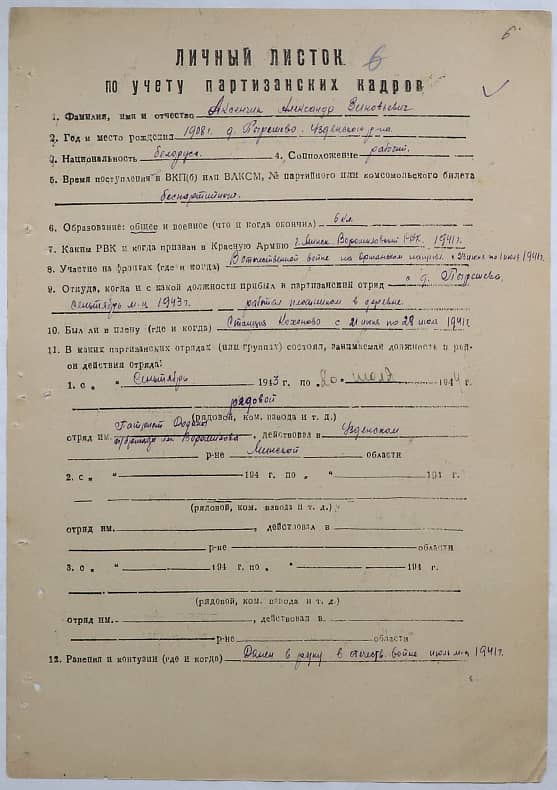 6
ЛИЧНЫЙ ЛИСТОК 6
по учету партизанских кадров
1. Фамилия, имя и отчество Аксенчик Александр Зиновьевич
2. Год и место рождения 1908 г. д. Теляшево Узденского р-на
3. Национальность белорус. 4. Соцположение рабочий.
5. Время поступления в ВКП(б) или ВЛКСМ, № партийного или комсомольского билета
беспартийный.
6. Образование: общее и военное (что и когда окончил) 6 кл.
7. Каким РВК и когда призван в Красную Армию г. Минск Ворошиловский РВК. 1941 г.
8. Участие на фронтах (где и когда) В отечественной войне на с 23 июня по июля 1941 г.
9. Откуда, когда и с какой должности прибыл в партизанский отряд с д.
Сентябрь м-ц 1943 г. работал плотником в деревне.
10. Был ли в плену (где и когда) Станция Коханово с 21 июля по 28 июля 1941 г.
11. В каких партизанских отрядах (или группах) состоял, занимаемая должность и рай-
он действия отряда:
1. с „ “ Сентябрь 1943 г. по „20“ июля 1944 г.
рядовой
(рядовой, ком. взвода и т. д.)
Патриот Родины
отряд им. бригада им Ворошилова, действовал в Узденском
р-не Минской области
2. с „ “ 194 г. по „ “ 194 г.
(рядовой, ком. взвода и т. д.)
отряд им. , действовал в
р-не области
3. с „ “ 194 г. по „ “ 194 г.
(рядовой, ком. взвода и т. д.)
отряд им. , действовал в
р-не области
12. Ранения и контузии (где и когда) Ранен в руку в отечеств. войне июль м-ц 1941 г.